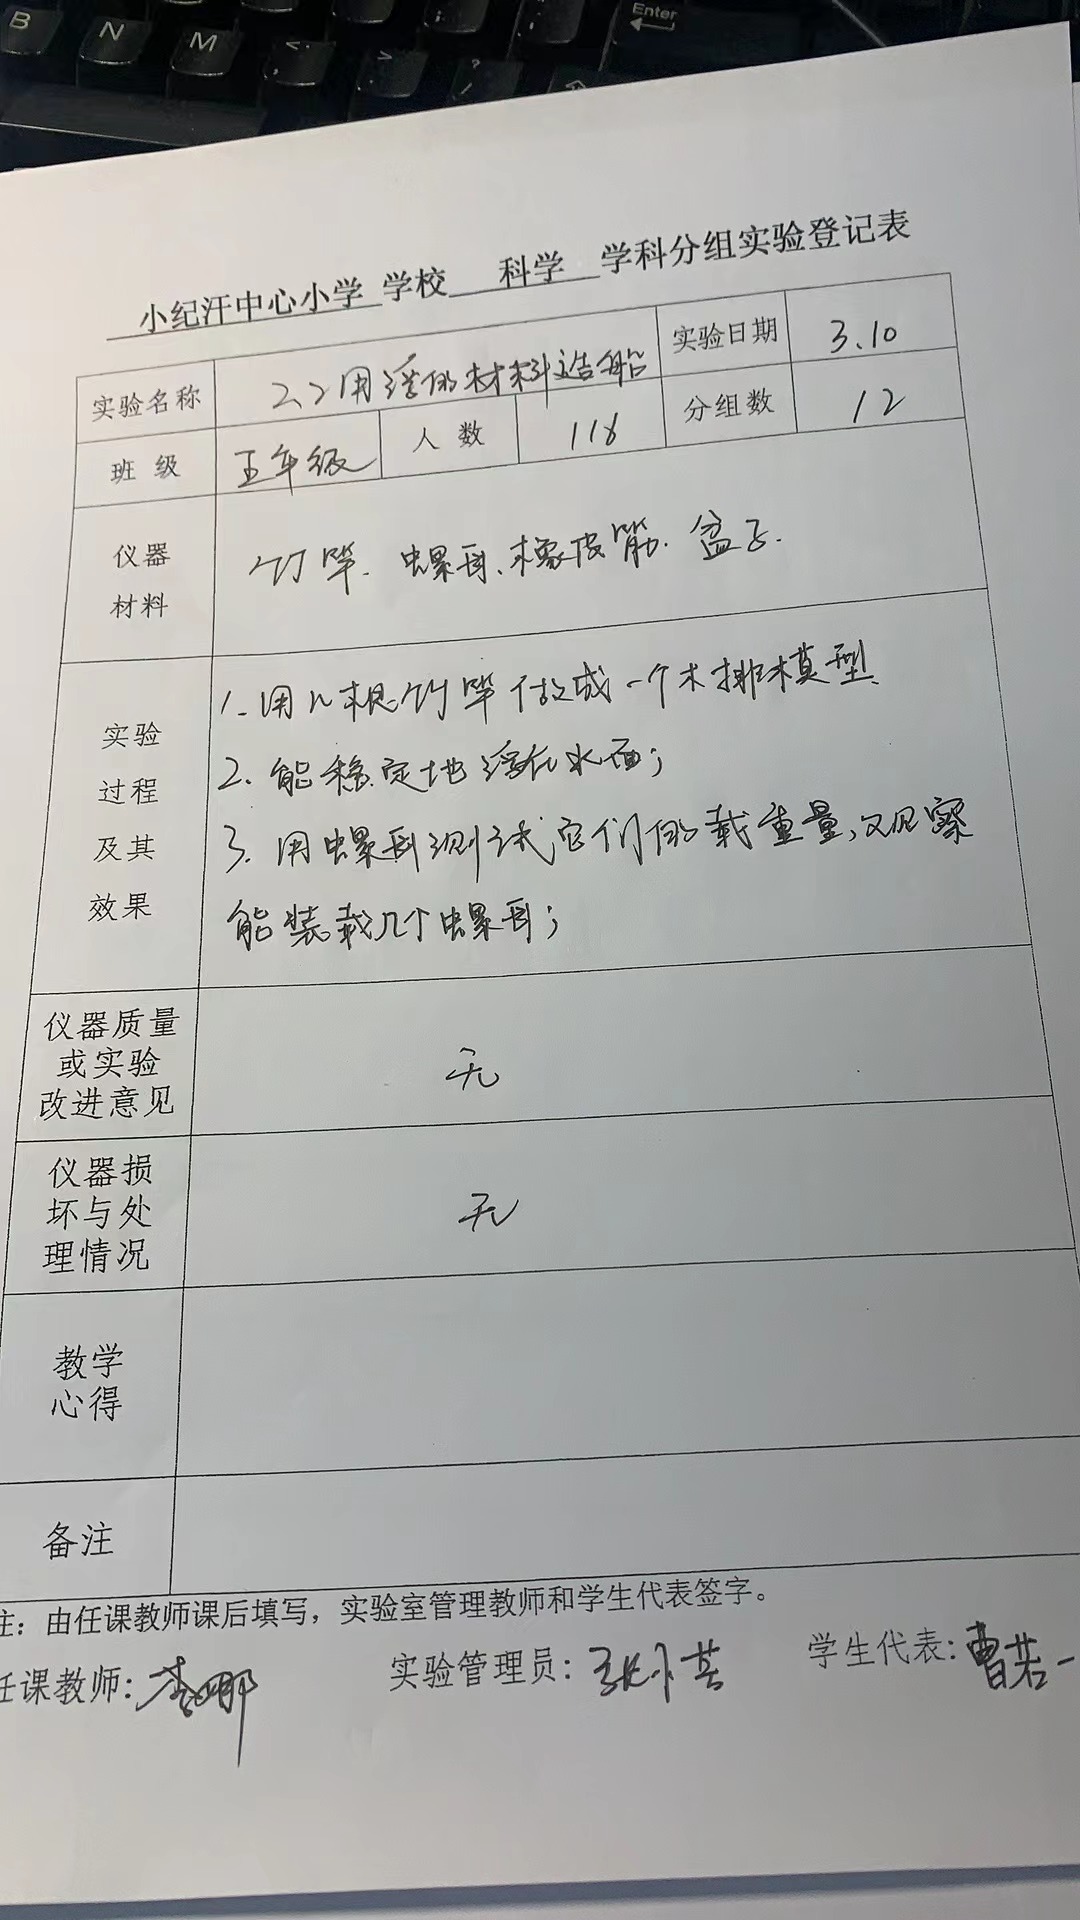 B N M Enter
小纪汗中心小学 学校 科学 学科分组实验登记表
实验名称 2.2用浮的材料造船 实验日期 3.10
班 级 五年级 人 数 118 分组数 12
仪器
材料
竹竿、螺母、橡皮筋、盆子.
实验
过程
及其
效果
1.用几根竹竿做成一个木排模型.
2.能稳定地浮在水面;
3.用螺母测试它们的载重量,观察
能装载几个螺母;
仪器质量
或实验
改进意见
无
仪器损
坏与处
理情况
无
教学
心得
备注
注：由任课教师课后填写，实验室管理教师和学生代表签字。
任课教师: 李娜 实验管理员: 学生代表: 曹若一